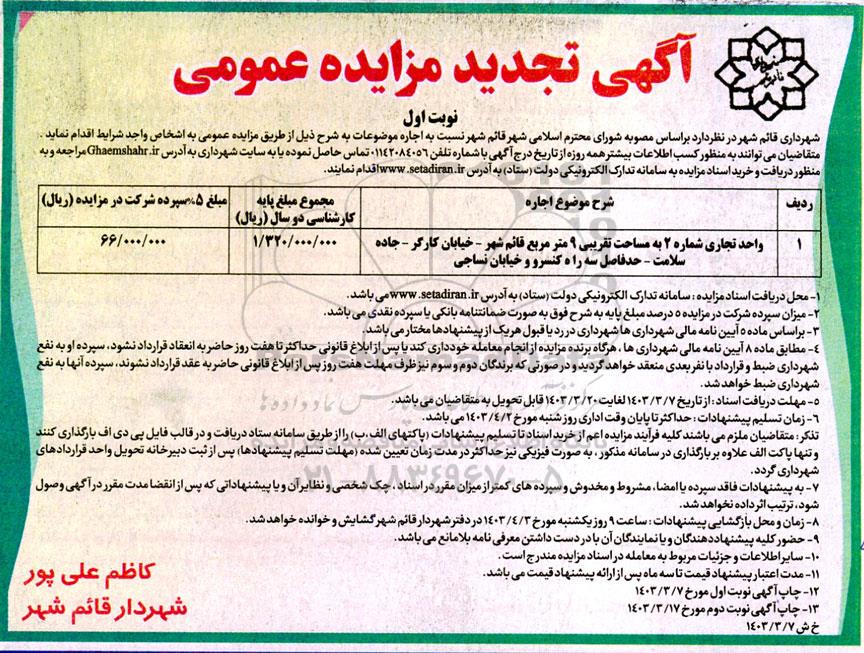 آگهی تجدید مزایده عمومی
نوبت اول
شهرداری قائم شهر در نظر دارد براساس مصوبه شورای محترم اسلامی شهر قائم شهر نسبت به اجاره موضوعات به شرح ذیل از طریق مزایده عمومی به اشخاص واجد شرایط اقدام نماید .
متقاضیان می توانند به منظور کسب اطلاعات بیشتر همه روزه از تاریخ درج آگهی با شماره تلفن ۰۱۱۴۲۰۸۴۰۵۶ تماس حاصل نموده یا به سایت شهرداری به آدرس Ghaemshahr.ir مراجعه و به
منظور دریافت و خرید اسناد مزایده به سامانه تدارک الکترونیکی دولت (ستاد) به آدرس www.setadiran.ir اقدام نمایند.
ردیف شرح موضوع اجاره مجموع مبلغ پایه کارشناسی دو سال (ریال) مبلغ ۵% سپرده شرکت در مزایده (ریال)
۱ واحد تجاری شماره ۲ به مساحت تقریبی ۹ متر مربع قائم شهر - خیابان کارگر - جاده سلامت - حدفاصل سه راه کنسرو و خیابان نساجی ۱/۳۲۰/۰۰۰/۰۰۰ ۶۶/۰۰۰/۰۰۰
۱- محل دریافت اسناد مزایده : سامانه تدارک الکترونیکی دولت (ستاد) به آدرس www.setadiran.ir می باشد.
۲- میزان سپرده شرکت در مزایده ۵ درصد مبلغ پایه به شرح فوق به صورت ضمانتنامه بانکی یا سپرده نقدی می باشد.
۳- بر اساس ماده ۵ آیین نامه مالی شهرداری ها شهرداری در رد یا قبول هر یک از پیشنهادها مختار می باشد.
۴- مطابق ماده ۸ آیین نامه مالی شهرداری ها ، هرگاه برنده مزایده از انجام معامله خودداری کند یا پس از ابلاغ قانونی حداکثر تا هفت روز حاضر به انعقاد قرارداد نشود، سپرده او به نفع
شهرداری ضبط و قرارداد با نفر بعدی منعقد خواهد گردید و در صورتی که برندگان دوم و سوم نیز ظرف مهلت هفت روز پس از ابلاغ قانونی حاضر به عقد قرارداد نشوند، سپرده آنها به نفع
شهرداری ضبط خواهد شد.
۵- مهلت دریافت اسناد : از تاریخ ۱۴۰۳/۳/۷ لغایت ۱۴۰۳/۳/۲۰ قابل تحویل به متقاضیان می باشد.
۶- زمان تسلیم پیشنهادات : حداکثر تا پایان وقت اداری روز شنبه مورخ ۱۴۰۳/۴/۲ می باشد.
تذکر : متقاضیان ملزم می باشند کلیه فرآیند مزایده اعم از خرید اسناد تا تسلیم پیشنهادات (پاکتهای الف،ب) را از طریق سامانه ستاد دریافت و در قالب فایل پی دی اف بارگذاری کنند
و تنها پاکت الف علاوه بر بارگذاری در سامانه مذکور ، به صورت فیزیکی نیز حداکثر در مدت زمان تعیین شده (مهلت تسلیم پیشنهادها) پس از ثبت دبیرخانه تحویل واحد قراردادهای
شهرداری گردد.
۷- به پیشنهادات فاقد سپرده یا امضا، مشروط و مخدوش و سپرده های کمتر از میزان مقرر در اسناد ، چک شخصی و نظایر آن و یا پیشنهاداتی که پس از انقضا مدت مقرر در آگهی وصول
شود، ترتیب اثر داده نخواهد شد.
۸- زمان و محل بازگشایی پیشنهادات : ساعت ۹ روز یکشنبه مورخ ۱۴۰۳/۴/۳ در دفتر شهردار قائم شهر گشایش و خوانده خواهد شد.
۹- حضور کلیه پیشنهاددهندگان و یا نمایندگان آن با در دست داشتن معرفی نامه بلامانع می باشد.
۱۰- سایر اطلاعات و جزئیات مربوط به معامله در اسناد مزایده مندرج است .
۱۱- مدت اعتبار پیشنهاد قیمت تا سه ماه پس از ارائه پیشنهاد قیمت می باشد.
۱۲- چاپ آگهی نوبت اول مورخ ۱۴۰۳/۳/۷
۱۳- چاپ آگهی نوبت دوم مورخ ۱۴۰۳/۳/۱۷
خ ش ۱۴۰۳/۳/۷
کاظم علی پور
شهردار قائم شهر
۰۲۱-۸۸۳۴۹۶۷۰-۵